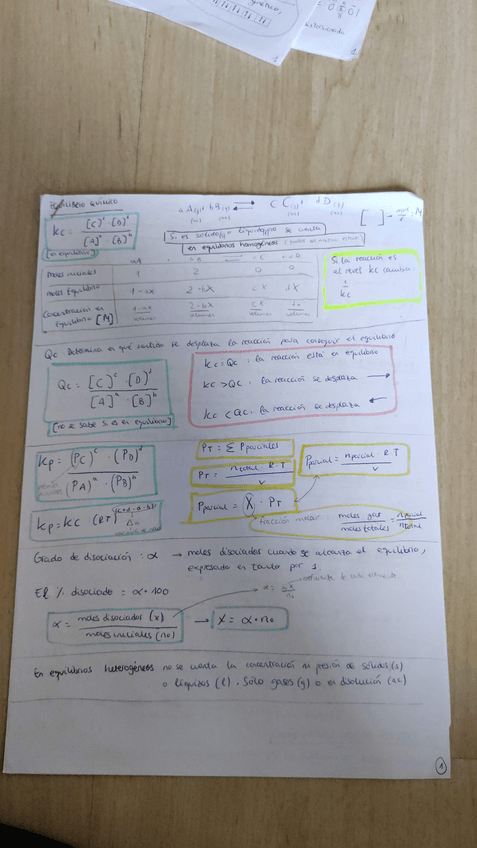 EQUILIBRIO QUÍMICO
a A(g) + b B(g) ⇄ c C(g) + d D(g)
[ ] → mol/L = M
Kc = [C]^c · [D]^d / [A]^a · [B]^b
[en equilibrio]
en equilibrios homogéneos
Si la reacción es
al revés Kc cambia
1/Kc
Moles iniciales 1 2 0 0
Moles Equilibrio 1-ax 2-bx cx dx
Concentración en Equilibrio [M] 1-ax/volumen 2-bx/volumen cx/volumen dx/volumen
Qc Determina en qué sentido se desplaza la reacción para conseguir el equilibrio
Qc = [C]^c · [D]^d / [A]^a · [B]^b
[no se sabe si es en equilibrio]
Kc = Qc : la reacción está en equilibrio
Kc > Qc : la reacción se desplaza →
Kc < Qc : la reacción se desplaza ←
Kp = (PC)^c · (PD)^d / (PA)^a · (PB)^b
Kp = Kc · (RT)^(c+d-a-b)
Δn
PT = Σ Pparciales
PT = ntotal · R · T / V
Pparcial = nparcial · R · T / V
Pparcial = X · PT
fracción molar: moles gas / moles totales = nparcial / ntotal
Grado de disociación : α → moles disociados cuando se alcanza el equilibrio,
expresada en tanto por 1
El % disociado = α · 100
α = moles disociados (x) / moles iniciales (no) → X = α · no
En equilibrios heterogéneos no se cuenta la concentración ni presión de sólidos (s)
o líquidos (l). Sólo gases (g) o en disolución (ac)
1